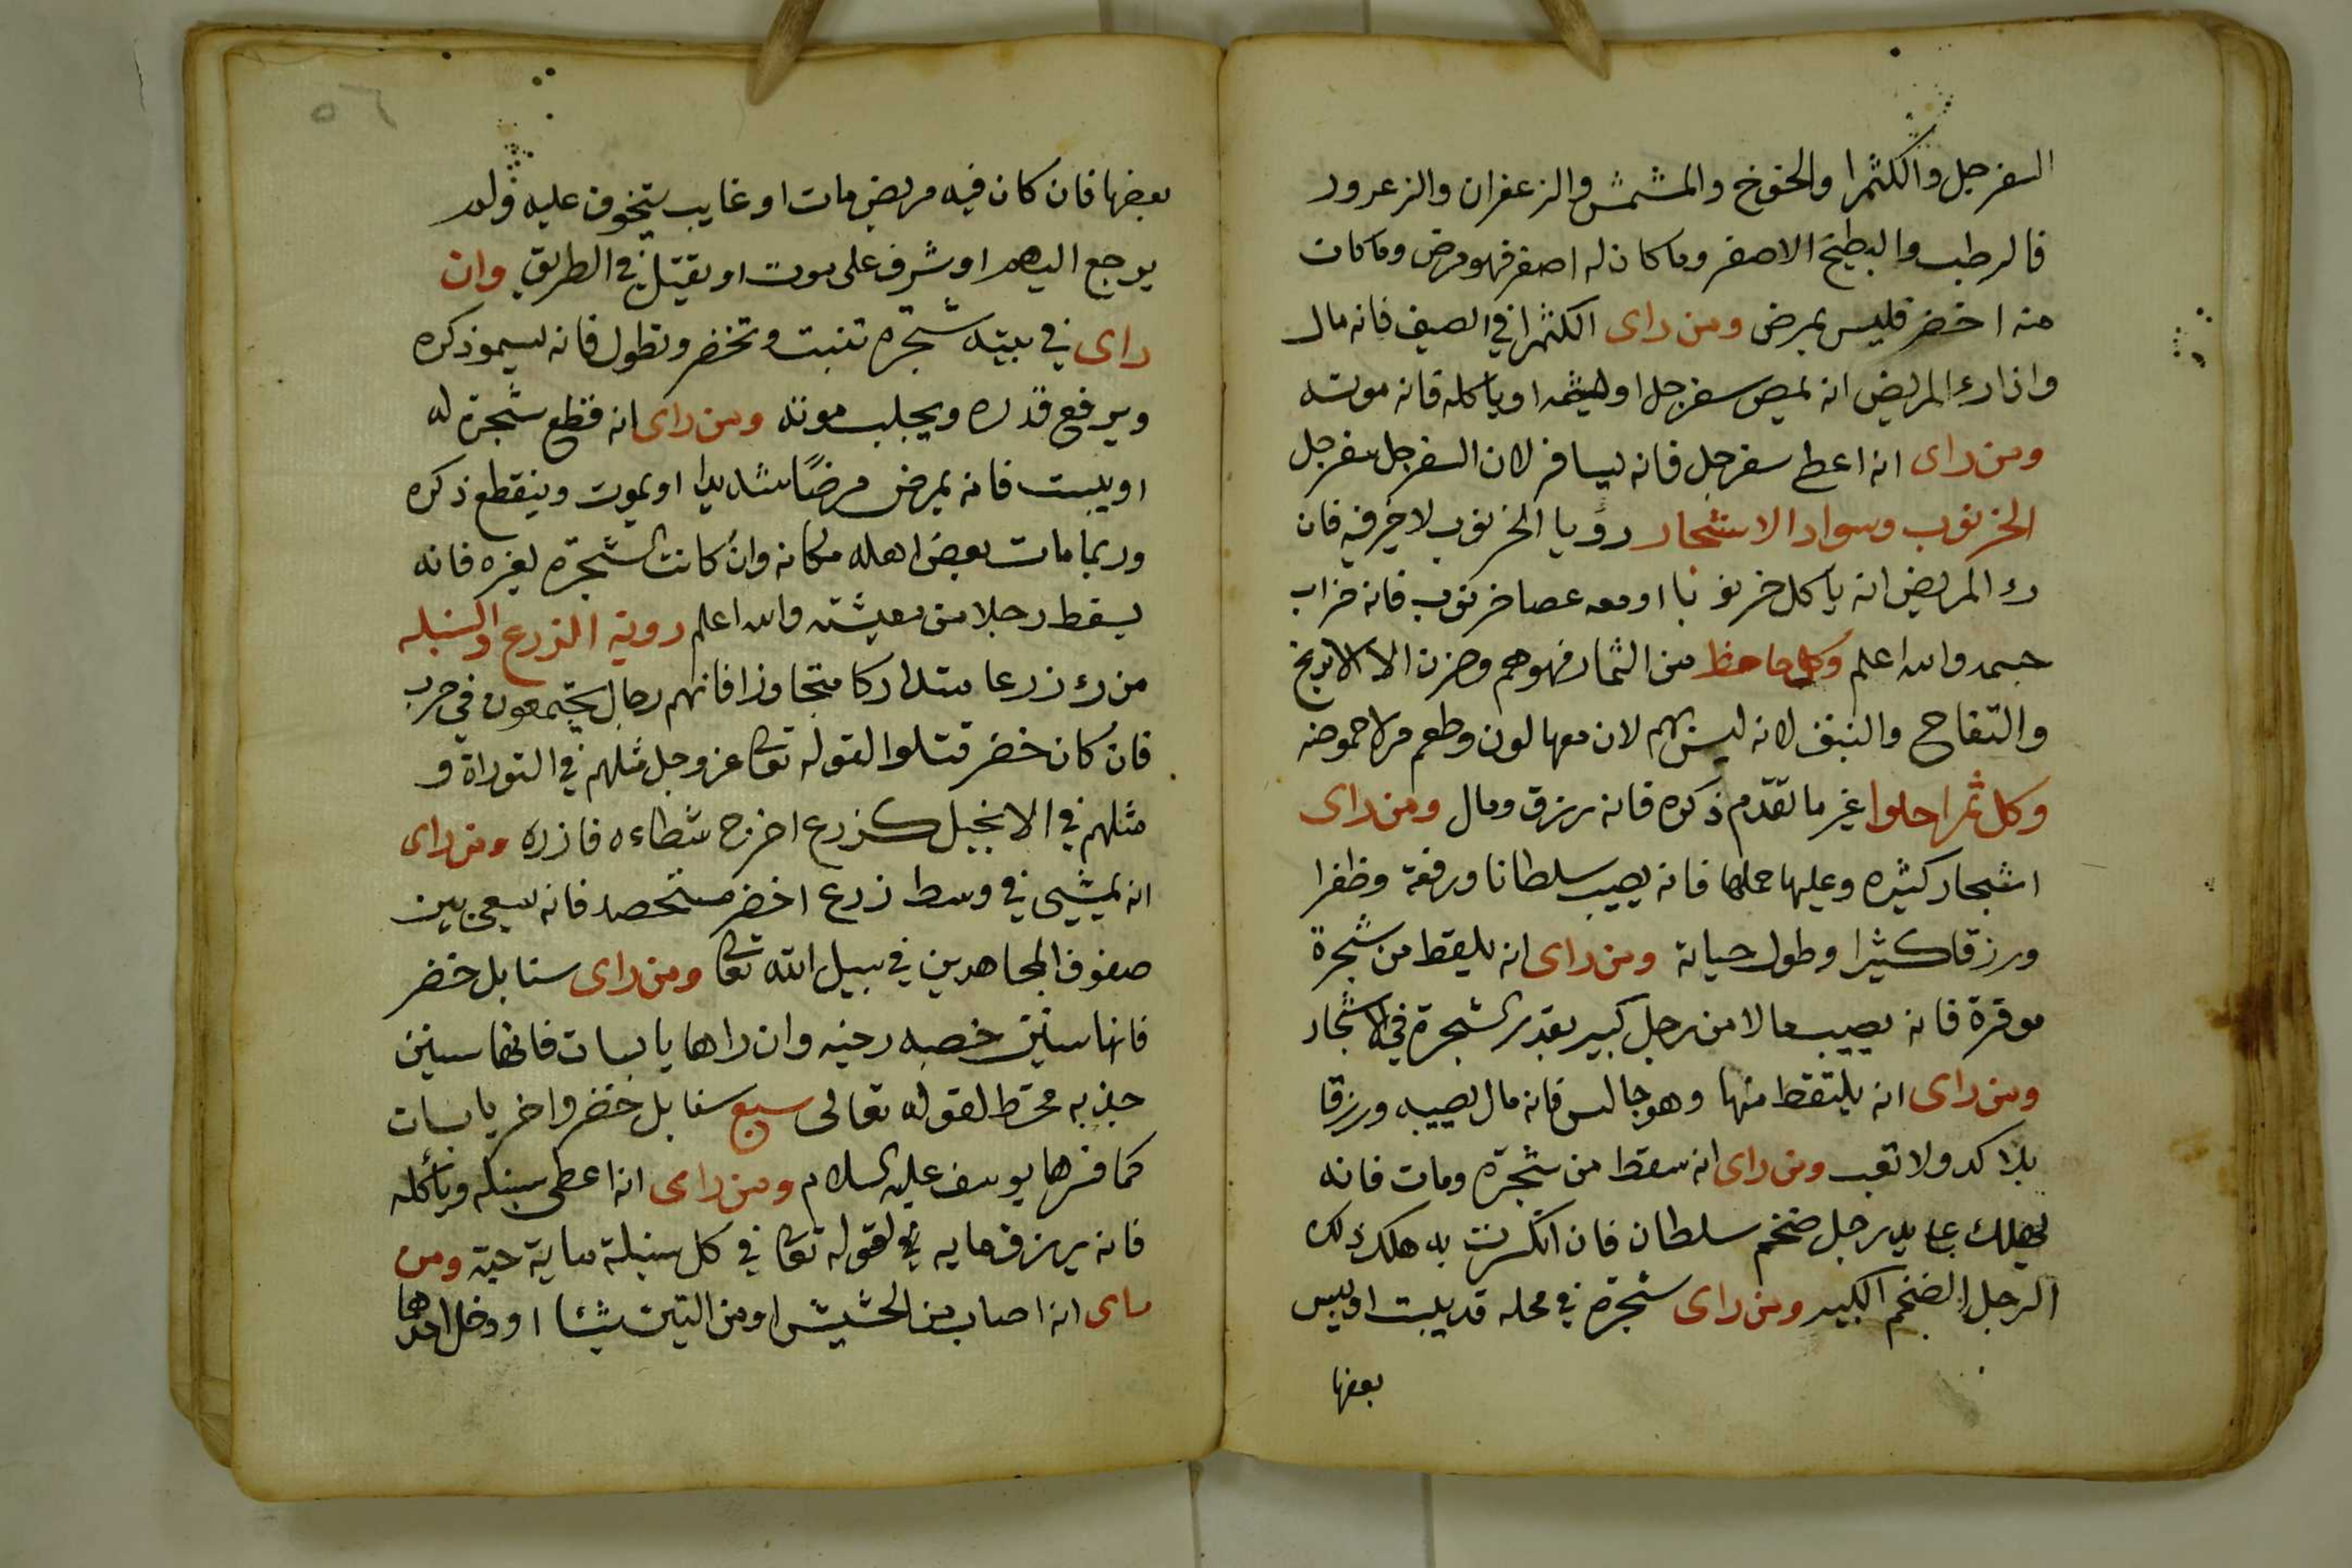 السفرجل والكثمرا والخوخ والمشمش والزعفران والزعرور
فالرطب والبطيخ الاصفر وما كان له اصفر فهو مرض وما كان
منه اخضر فليس بمرض ومن راى الكثمرا في الصيف فانه مال
واذا رء المريض انه يمص سفرجل او ياكله فانه موته
ومن راى انه اعطى سفرجل فانه يسافر لان السفرجل سفر جل
الخرنوب وسواد الاشجار رؤيا الخرنوب لا خير فيه فان
رء المريض انه ياكل خرنوبا او معه عصا خرنوب فانه خراب
جسمه والله اعلم وكل حامظ من الثمار فهو هم وحزن الا الاترنج
والتفاح والنبق لانه ليس بهم لان معها لون وطعم مرلاحموضه
وكل ثمرا حلوا غير ما تقدّم ذكره فانه رزق ومال ومن راى
اشجار كثيره وعليها حملها فانه يصيب سلطانا ورفعة وظفرا
ورزقا كثيرا وطول حياته ومن راى انه يلقط من شجرة
موقرة فانه يصيب مالا من رجل كبير بقدر الشجرة في الاشجار
ومن راى انه يلتقط منها وهو جالس فانه مال يصيبه ورزقا
بلا كد ولا تعب ومن راى انه سقط من شجرة ومات فانه
يهلك على يد رجل ضخم سلطان فان انكسرت يده هلك ذلك
الرجل الضخم الكبير ومن راى شجرة في محله قد يبست او يبس
بعضها
٥٦
بعضها فان كان فيه مريض مات او غايب يتخوف عليه ولم
يرجع اليهم او شرف على موت او يقتل في الطريق وان
راى في بيته شجره تنبت وتخضر وتطول فانه يسمو ذكره
ويرفع قدره ويجلب مونته ومن راى انه قطع شجرة له
او يبست فانه يمرض مرضًا شديدا او يموت وينقطع ذكره
وربما مات بعض اهله مكانه وان كانت الشجرة لغيره فانه
يسقط رجلا من معيشته والله اعلم روية الزرع والسنبله
من رء زرعا متداركا متجاوزا فانهم رجال يجتمعون في حرب
فان كان خضر قتلوا لقوله تعا عز وجل مثلهم في التوراة و
مثلهم في الانجيل كزرع اخرج شطاءه فازره ومن راى
انه يمشيى في وسط زرع اخضر مستحصد فانه سعى بين
صفوف المجاهدين في سبيل الله تعا ومن راى سنابل خضر
فانها سنين خصبه رخيه وان راها يابسات فانها سنين
جدبه محتط لقوله تعالى سبع سنابل خضر واخر يابسات
كما فسرها يوسف عليه السلام ومن راى انه اعطى سنبله وياكله
فانه يرزق مايه لقوله تعا في كل سنبلة ماية حبة ومن
راى انه اصاب من الحشيش او من التين شيئا او دخل احدهما